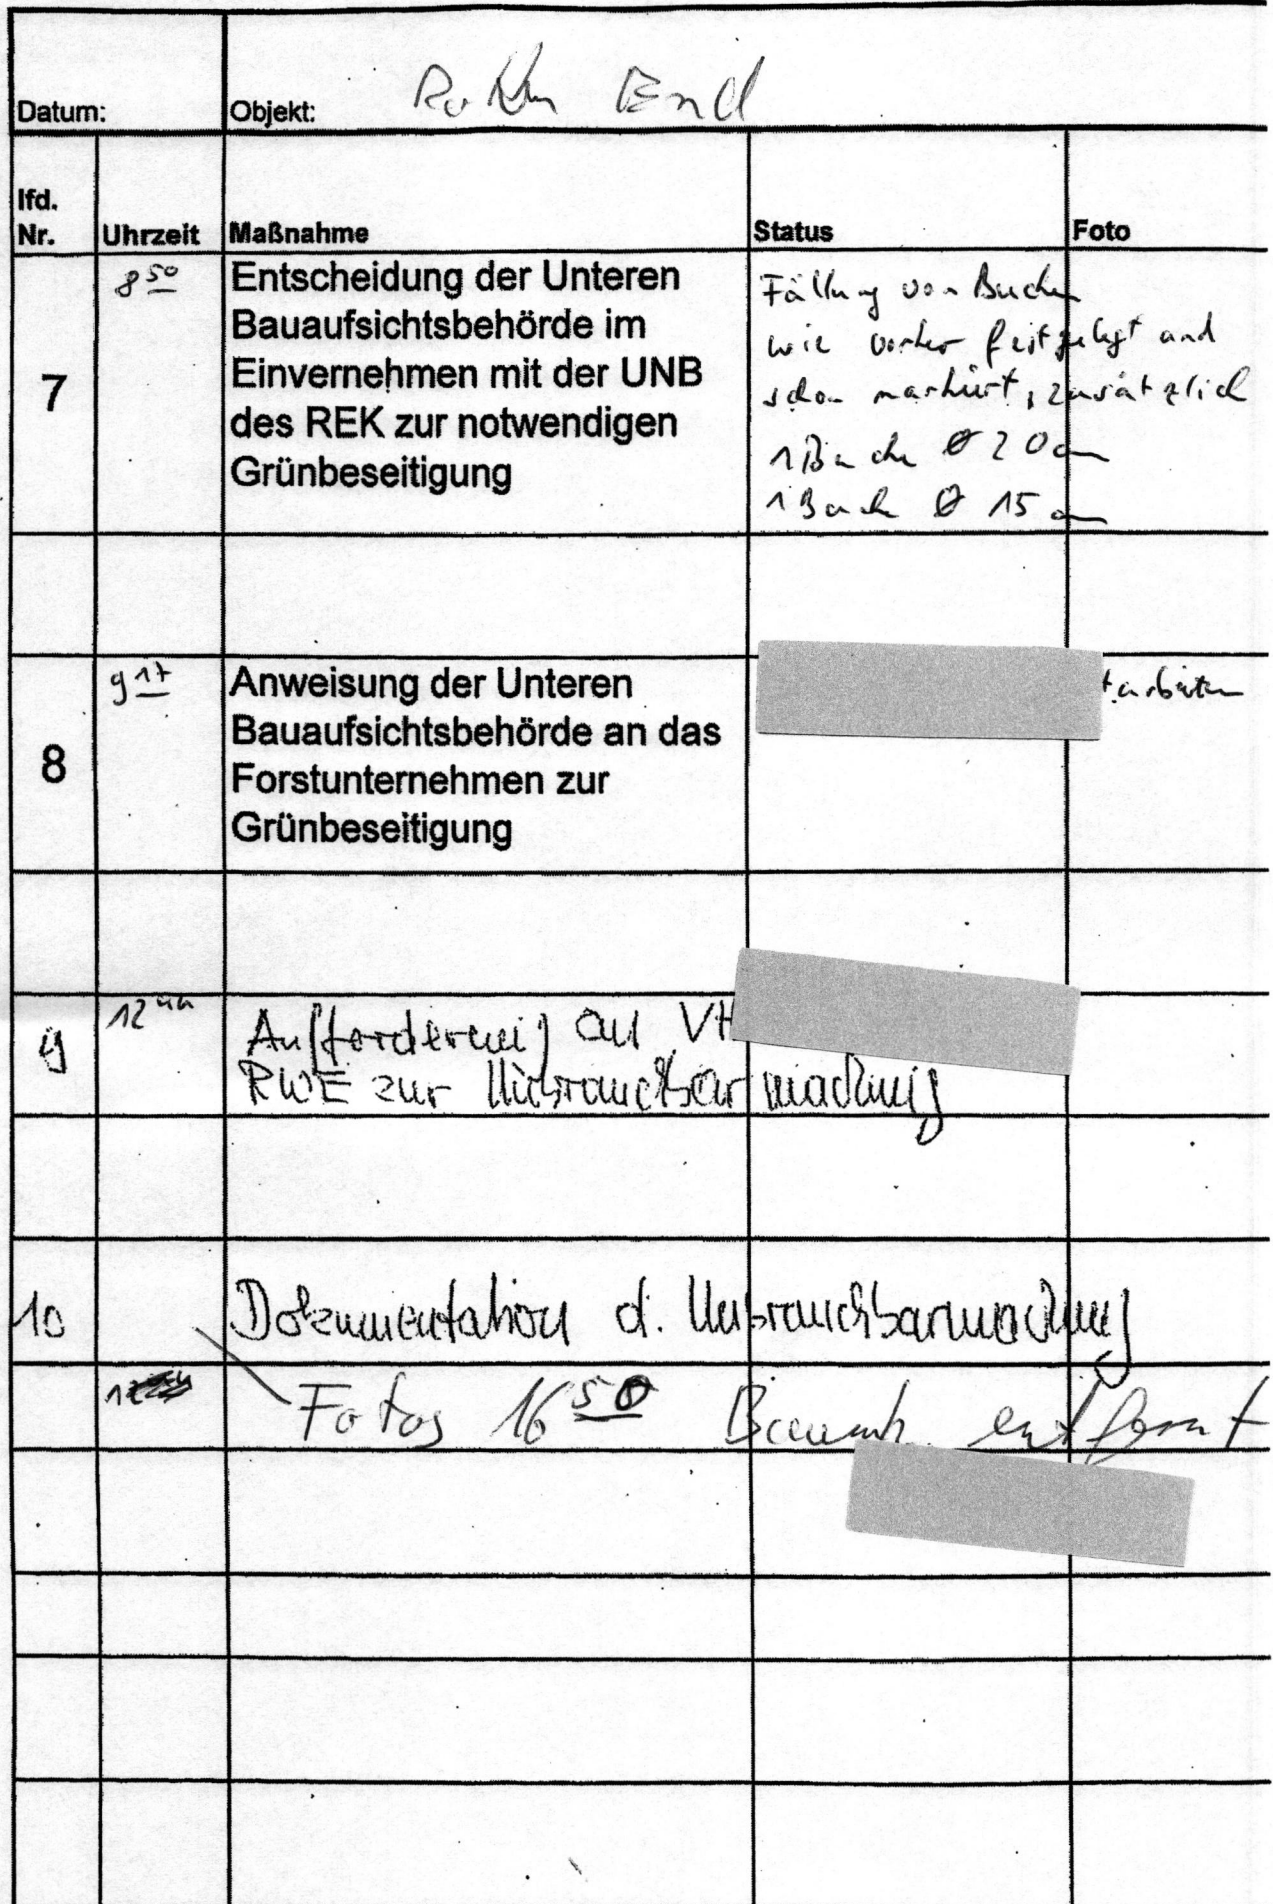 Datum:
Objekt: End
lfd.
Nr. Uhrzeit Maßnahme Status Foto
7
8 50
Entscheidung der Unteren
Bauaufsichtsbehörde im
Einvernehmen mit der UNB
des REK zur notwendigen
Grünbeseitigung
Fällung von Buchen
wie vorher festgelegt und
schon markiert, zusätzlich
1 Buche Ø 20 cm
1 Buche Ø 15 cm
8
9 17
Anweisung der Unteren
Bauaufsichtsbehörde an das
Forstunternehmen zur
Grünbeseitigung
9
12 44
Aufforderung an VH
RWE zur Unbrauchbarmachung
10
Dokumentation d. Unbrauchbarmachung
Fotos 16 50 entfernt